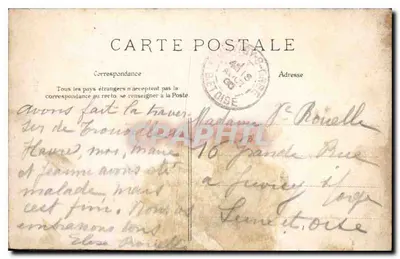 CARTE POSTALE
Correspondance
Adresse
Tous les pays étrangers n'acceptent pas la
correspondance au recto, se renseigner à la Poste
avons fait la traver
ser de Trouville au
Havre, moi, Marie
et Jeanne avons été
malade mais
c'est fini. Nous vous
embrassons tous
Elise Rouelle
Madame Vve Rouelle
16 Grande Rue
à Juvisy s/ orge
Seine et oise